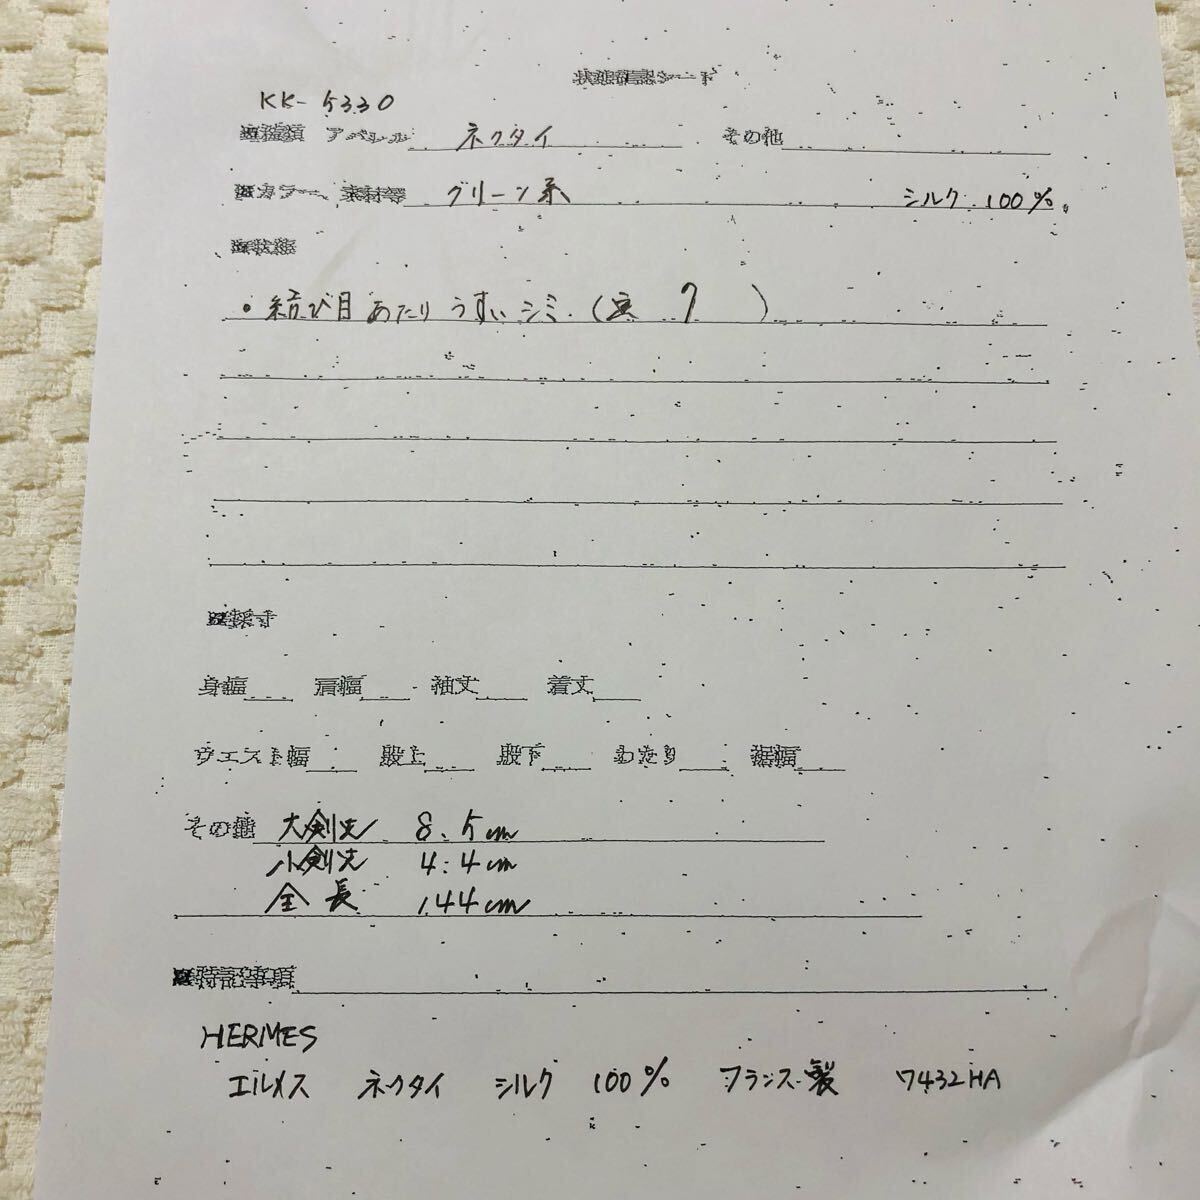 状態確認シート
KK-5330
■種類 アパレル ネクタイ その他
■カラー、素材等 グリーン系 シルク 100%
■状態
・結び目あたり うすいシミ. ( 7 )
■採寸
身幅 肩幅 袖丈 着丈
ウエスト幅 股上 股下 わたり 裾幅
その他 大剣丈 8.5cm
小剣丈 4.4cm
全長 144cm
■特記事項
HERMES
エルメス ネクタイ シルク 100% フランス製 7432HA